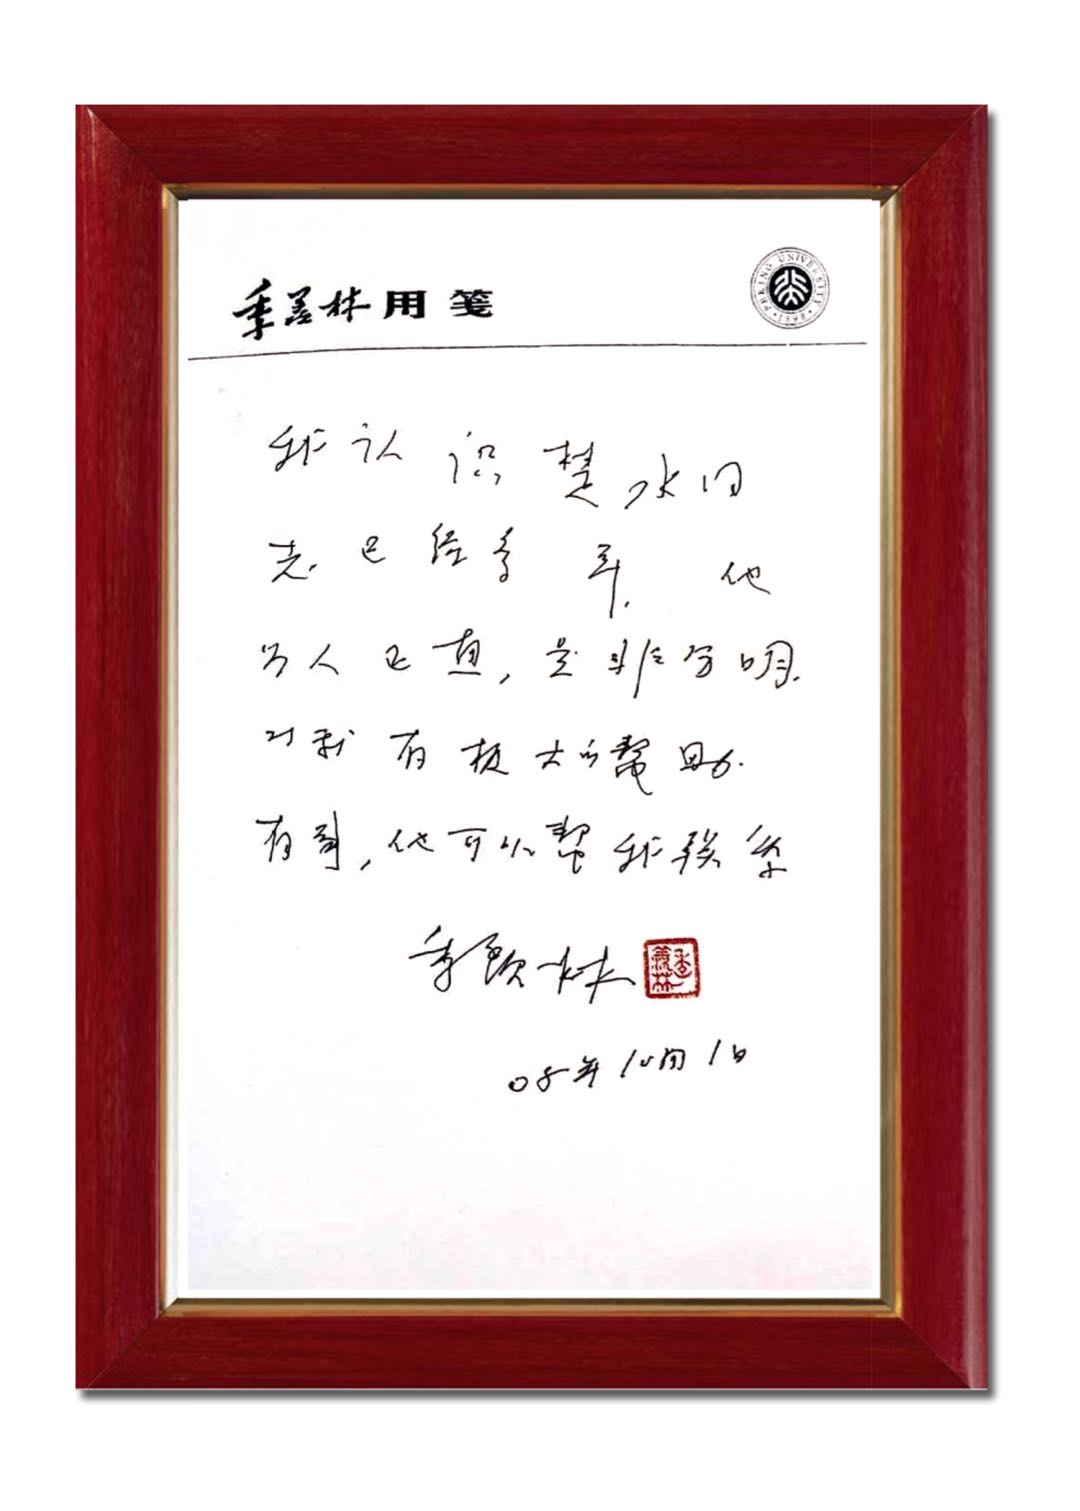 季羡林用箋
PEKING UNIVERSITY
1898
我认识楚水同
志已经多年.他
为人正直,是非分明.
对我有极大的幫助.
有事,他可以幫我联系
季羡林
季羡林
08年10月1日